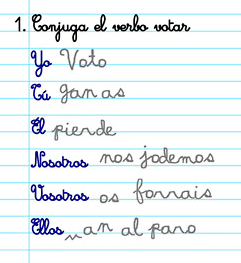 1. Conjuga el verbo votar
Yo Voto
Tú ganas
Él pierde
Nosotros nos jodemos
Vosotros os forrais
Ellos van al paro